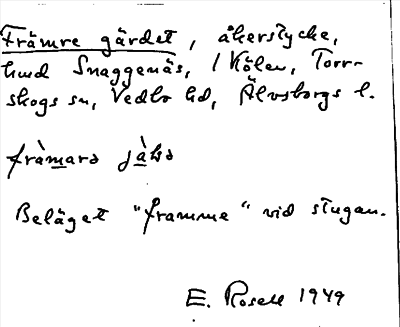 Främre gärdet, åkerstycke,
hmd Snaggenäs, 1 Kölen, Torr-
skogs sn, Vedbo hd, Älvsborgs l.
främara
Beläget "framme" vid stugan.
E. Rosell 1949